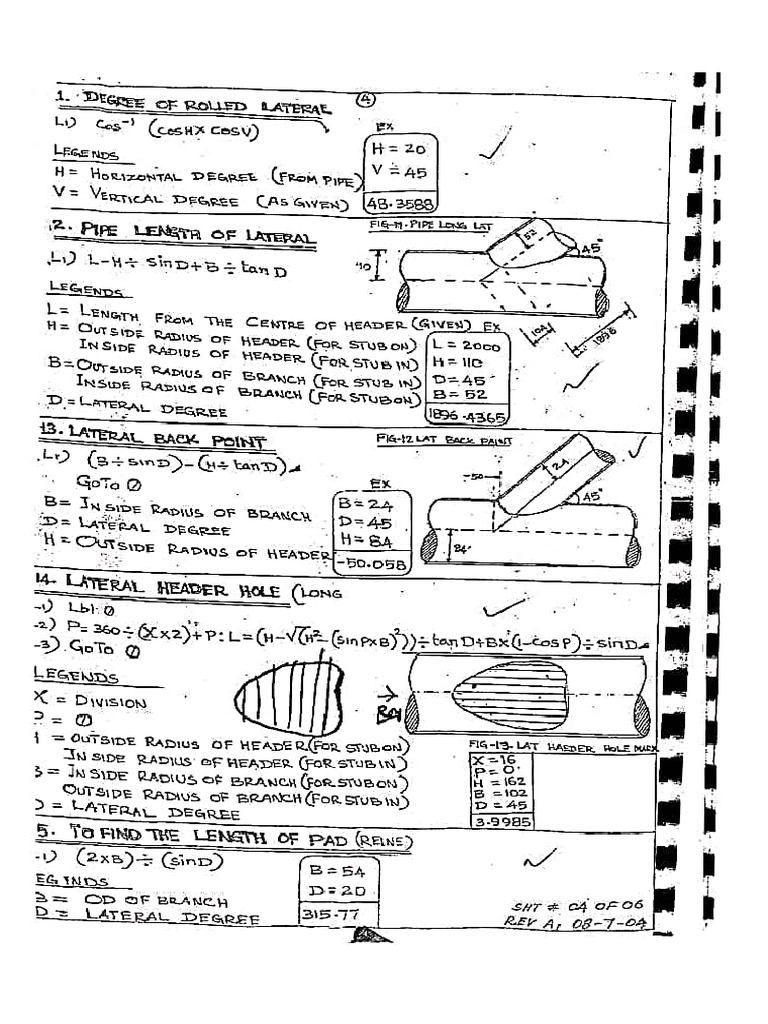 1. DEGREE OF ROLLED LATERAL
④
L1) Cos⁻¹ (COSH X COSV)
EX
H = 20
V = 45
48.3588
LEGENDS
H = HORIZONTAL DEGREE (FROM PIPE)
V = VERTICAL DEGREE (AS GIVEN)
2. PIPE LENGTH OF LATERAL
FIG-11. PIPE LONG LAT
L1) L-H÷ sinD+B÷tanD
52
45°
LEGENDS
L = LENGTH FROM THE CENTRE OF HEADER (GIVEN)
H = OUTSIDE RADIUS OF HEADER (FOR STUB ON)
INSIDE RADIUS OF HEADER (FOR STUB IN)
B = OUTSIDE RADIUS OF BRANCH (FOR STUB IN)
INSIDE RADIUS OF BRANCH (FOR STUB ON)
D = LATERAL DEGREE
EX
L = 2000
H = 110
D = 45°
B = 52
1896.4365
104
1898
13. LATERAL BACK POINT
FIG-12 LAT BACK PAINT
(B÷sinD)-(H÷tanD)
GOTO 0
B = INSIDE RADIUS OF BRANCH
D = LATERAL DEGREE
H = OUTSIDE RADIUS OF HEADER
EX
B = 24
D = 45
H = 84
-50.058
-50
24
45°
24
14. LATERAL HEADER HOLE (LONG
-1) Lbl: 0
-2) P=360÷(X x2)+P: L=(H-√(H²-(sinPxB)²))÷tanD+Bx(1-cosP)÷sinD
-3) GOTO 0
LEGENDS
X = DIVISION
P = 0
H = OUTSIDE RADIUS OF HEADER (FOR STUB ON)
INSIDE RADIUS OF HEADER (FOR STUB IN)
B = INSIDE RADIUS OF BRANCH (FOR STUB ON)
OUTSIDE RADIUS OF BRANCH (FOR STUB IN)
D = LATERAL DEGREE
FIG-13- LAT HAEDER HOLE MARK
X = 16
P = 0°
H = 162
B = 102
D = 45
3.9985
5. TO FIND THE LENGTH OF PAD (REINF)
-1) (2xB)÷(sinD)
B = 54
D = 20
315.77
EGINDS
B = OD OF BRANCH
D = LATERAL DEGREE
SHT # 04 OF 06
REV A, 08-7-04